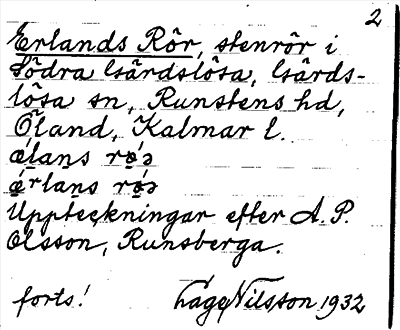 2
Erlands Rör, stenrör i
Södra Gärdslösa, Gärds-
lösa sn, Runstens hd,
Öland, Kalmar l.
Uppteckningar efter A. P.
Olsson, Runsberga.
forts! Lage Nilsson 1932